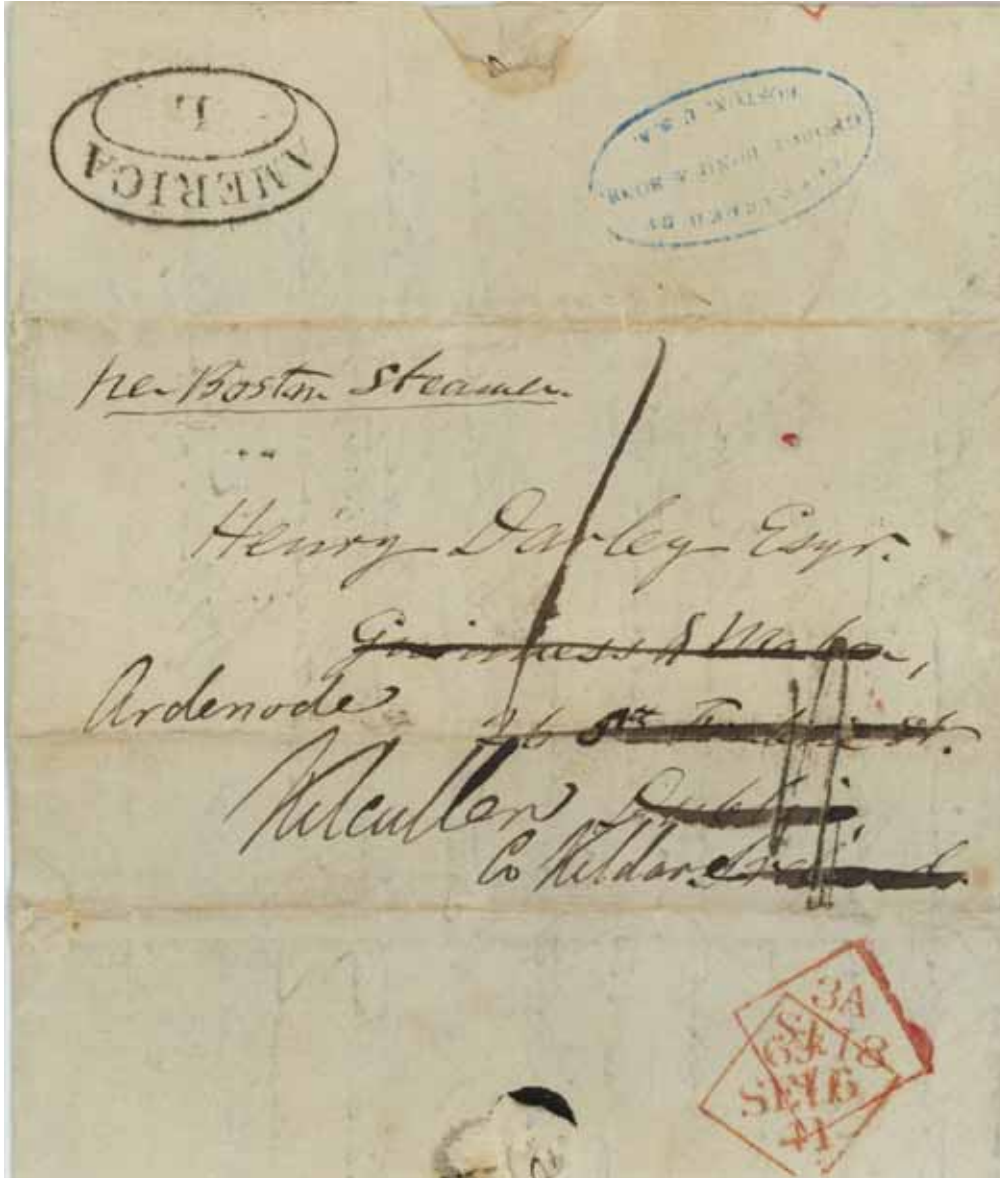 AMERICA
L.
FORWARDED BY
BOSTON, U.S.A.
per Boston Steamer.
Henry Darley Esqr.
Guinness & Mahon,
Ardenode
26 St.
Kilcullen Dublin,
Co Kildare Ireland.
3A
SE 18
SE 16
41